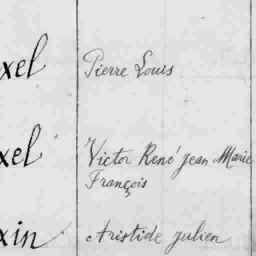 xel Pierre Louis
xel Victor René jean Marie
François
xin Aristide julien